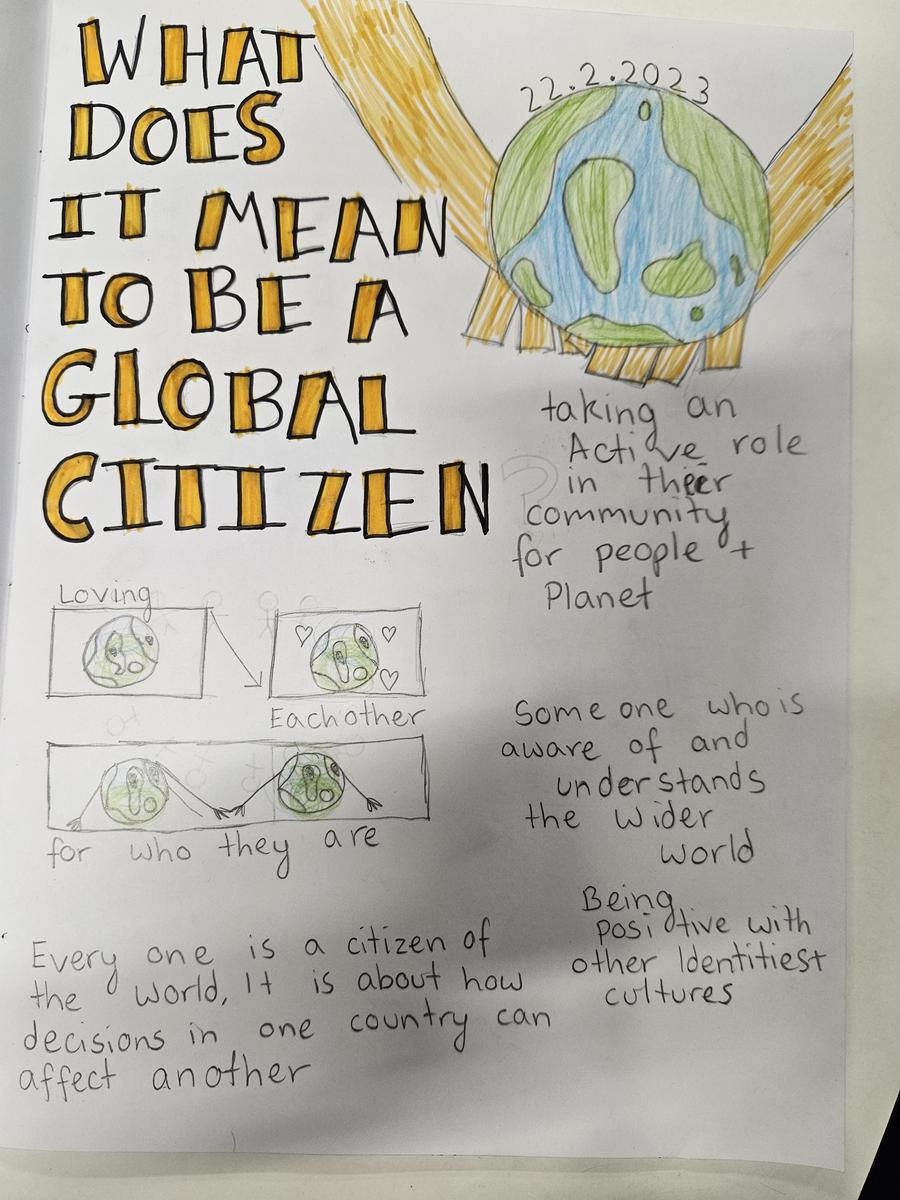 WHAT
DOES
IT MEAN
TO BE A
GLOBAL
CITIZEN
?
22.2.2023
taking an
Active role
in their
community
for people +
Planet
Loving
Each other
for who they are
Some one who is
aware of and
understands
the wider
world
Being
positive with
other Identities+
cultures
Every one is a citizen of
the world, It is about how
decisions in one country can
affect another